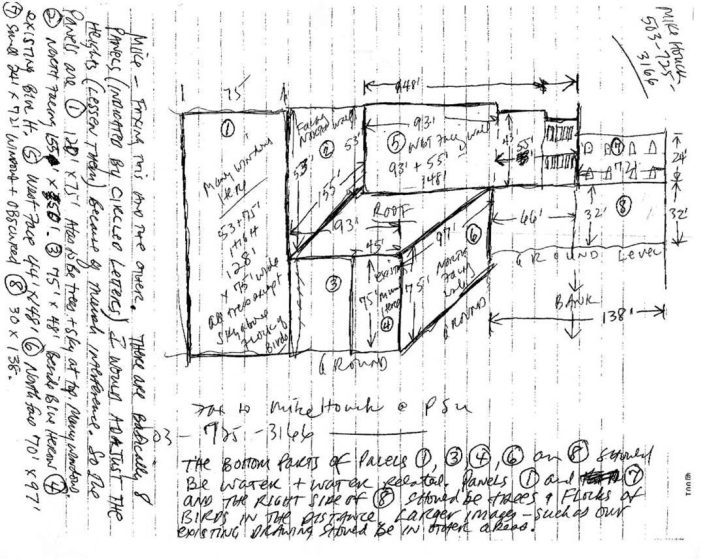 Mike Houck
503-725-
3166
Mike - Faxing this and one other. There are basically 8
Panels (indicated by circled letters) I would adjust the
Heights (lessen them) because of mural interference. So the
Panels are ① 128' x 75' Also to be trees + sky at top. Many windows
② North Facing
③ 75 x 48' Beside Blue Heron ④
existing Blue H. ⑤ West Face 44' x 148' ⑥ North Face 70' x 97'
⑦ 24' x 72' windows + obscured ⑧ 30 x 138.
75'
148'
①
Many windows
here
53 + 75'
High
128'
x 75' wide
all trees except
sky above
flock of
Birds
Facing
North wall
②
53'
53'
155'
93'
⑤ West Face wall
93' + 55'
148'
43'
55'
⑦
72'
24'
8'
ROOF
93'
45'
③
existing
75' mural
④
75'
97'
North
Facing
wall
⑥
GROUND
GROUND
46'
32'
⑧
32'
GROUND Level
BANK
138'
Fax to Mike Houck @ PSU
503-725-3166
THE BOTTOM PARTS OF PANELS ①, ③ ④, ⑥ and ⑧ should
BE WATER + WATER RELATED. PANELS ① and ⑦
AND THE RIGHT SIDE OF ⑧ should be TREES & Flocks of
BIRDS IN THE DISTANCE. LARGER images - such as our
existing DRAWING should BE IN OTHER AREAS.